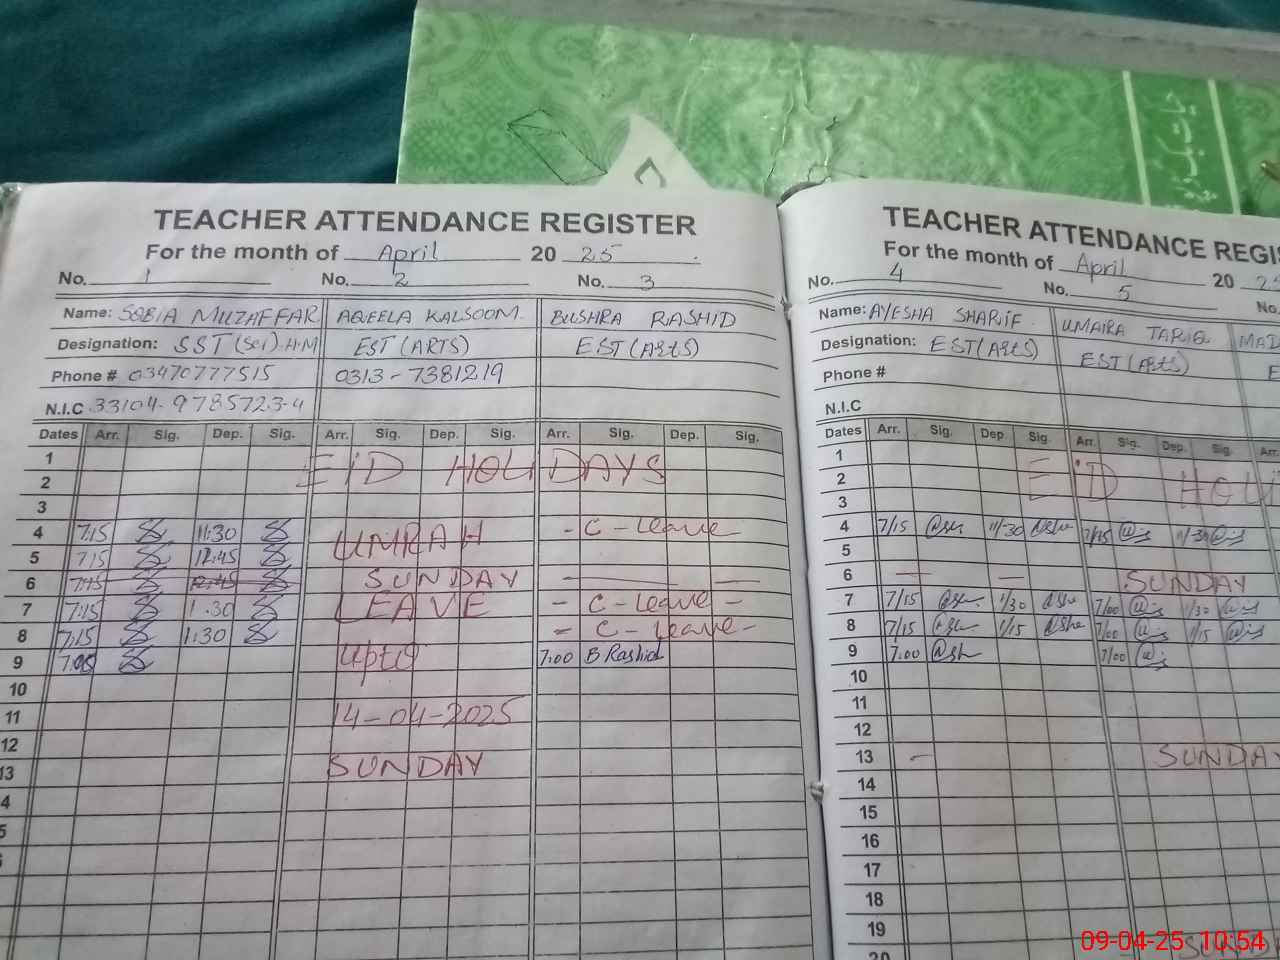 TEACHER ATTENDANCE REGISTER
For the month of April 20 25
No. 1 No. 2 No. 3
Name: SOBIA MUZAFFAR AQEELA KALSOOM. BUSHRA RASHID
Designation: SST (Sci).H.M EST (ARTS) EST (Arts)
Phone # 03470777515 0313-7381219
N.I.C 33104-9785723-4
Dates Arr. Sig. Dep. Sig. Arr. Sig. Dep. Sig. Arr. Sig. Dep. Sig.
1
2 EID HOLIDAYS
3
4 7:15 11:30 UMRAH - C - Leave -
5 7:15 12:45
6 7:45 12:45 SUNDAY
7 7:15 1:30 LEAVE - C - Leave -
8 7:15 1:30 - C - Leave -
9 7:05 Upto 7:00 B Rashid
10
11 14-04-2025
12
13 SUNDAY
4
5
TEACHER ATTENDANCE REGIS
For the month of April 20 25
No. 4 No. 5 No.
Name: AYESHA SHARIF UMAIRA TARIQ MAD
Designation: EST (Arts) EST (Arts) E
Phone #
N.I.C
Dates Arr. Sig. Dep Sig. Arr. Sig. Dep. Sig. Arr.
1
2 EID HOLI
3
4 7/15 11/30 7/15 11/30
5
6 SUNDAY
7 7/15 1/30 7/00 1/30
8 7/15 1/15 7/00 1/15
9 7:00 7/00
10
11
12
13 - SUNDAY
14
15
16
17
18
19
20 SUND
09-04-25 10:54